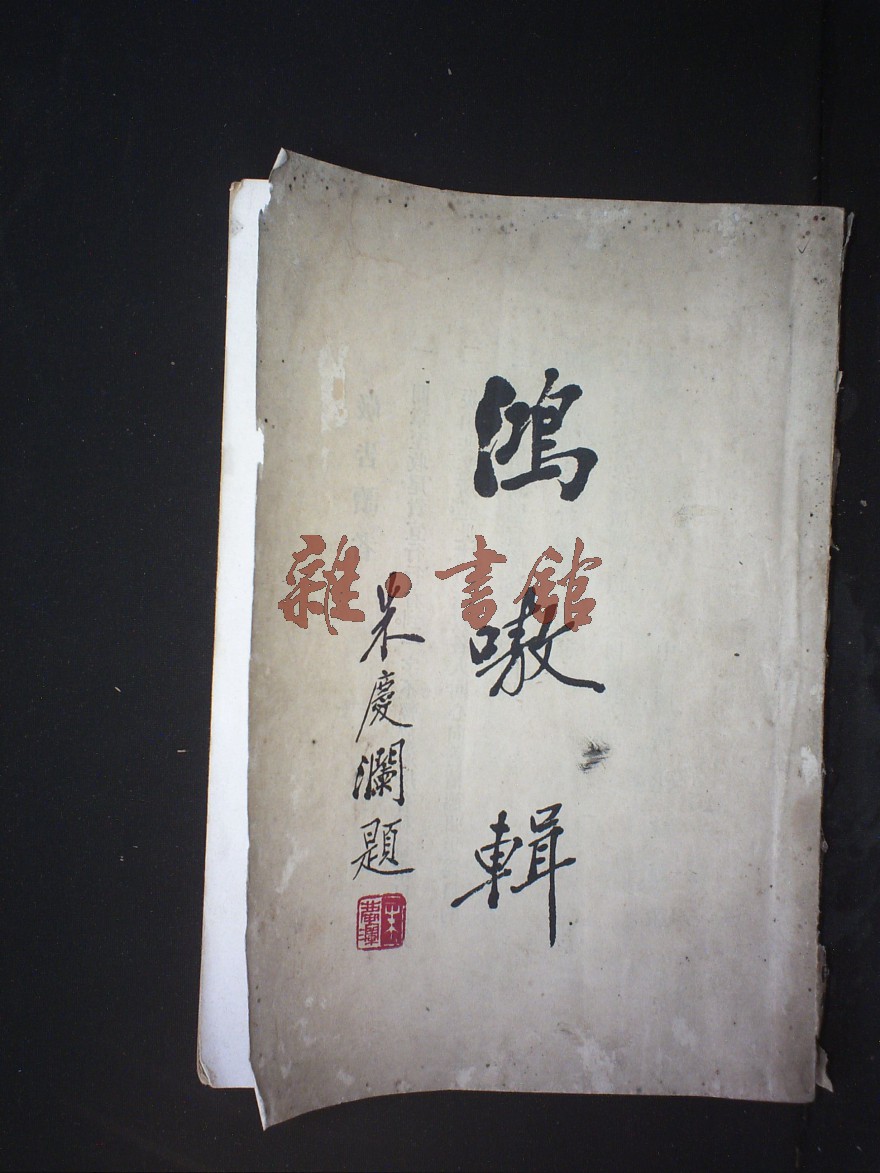 鴻嗷輯
朱慶瀾題
雜·書館